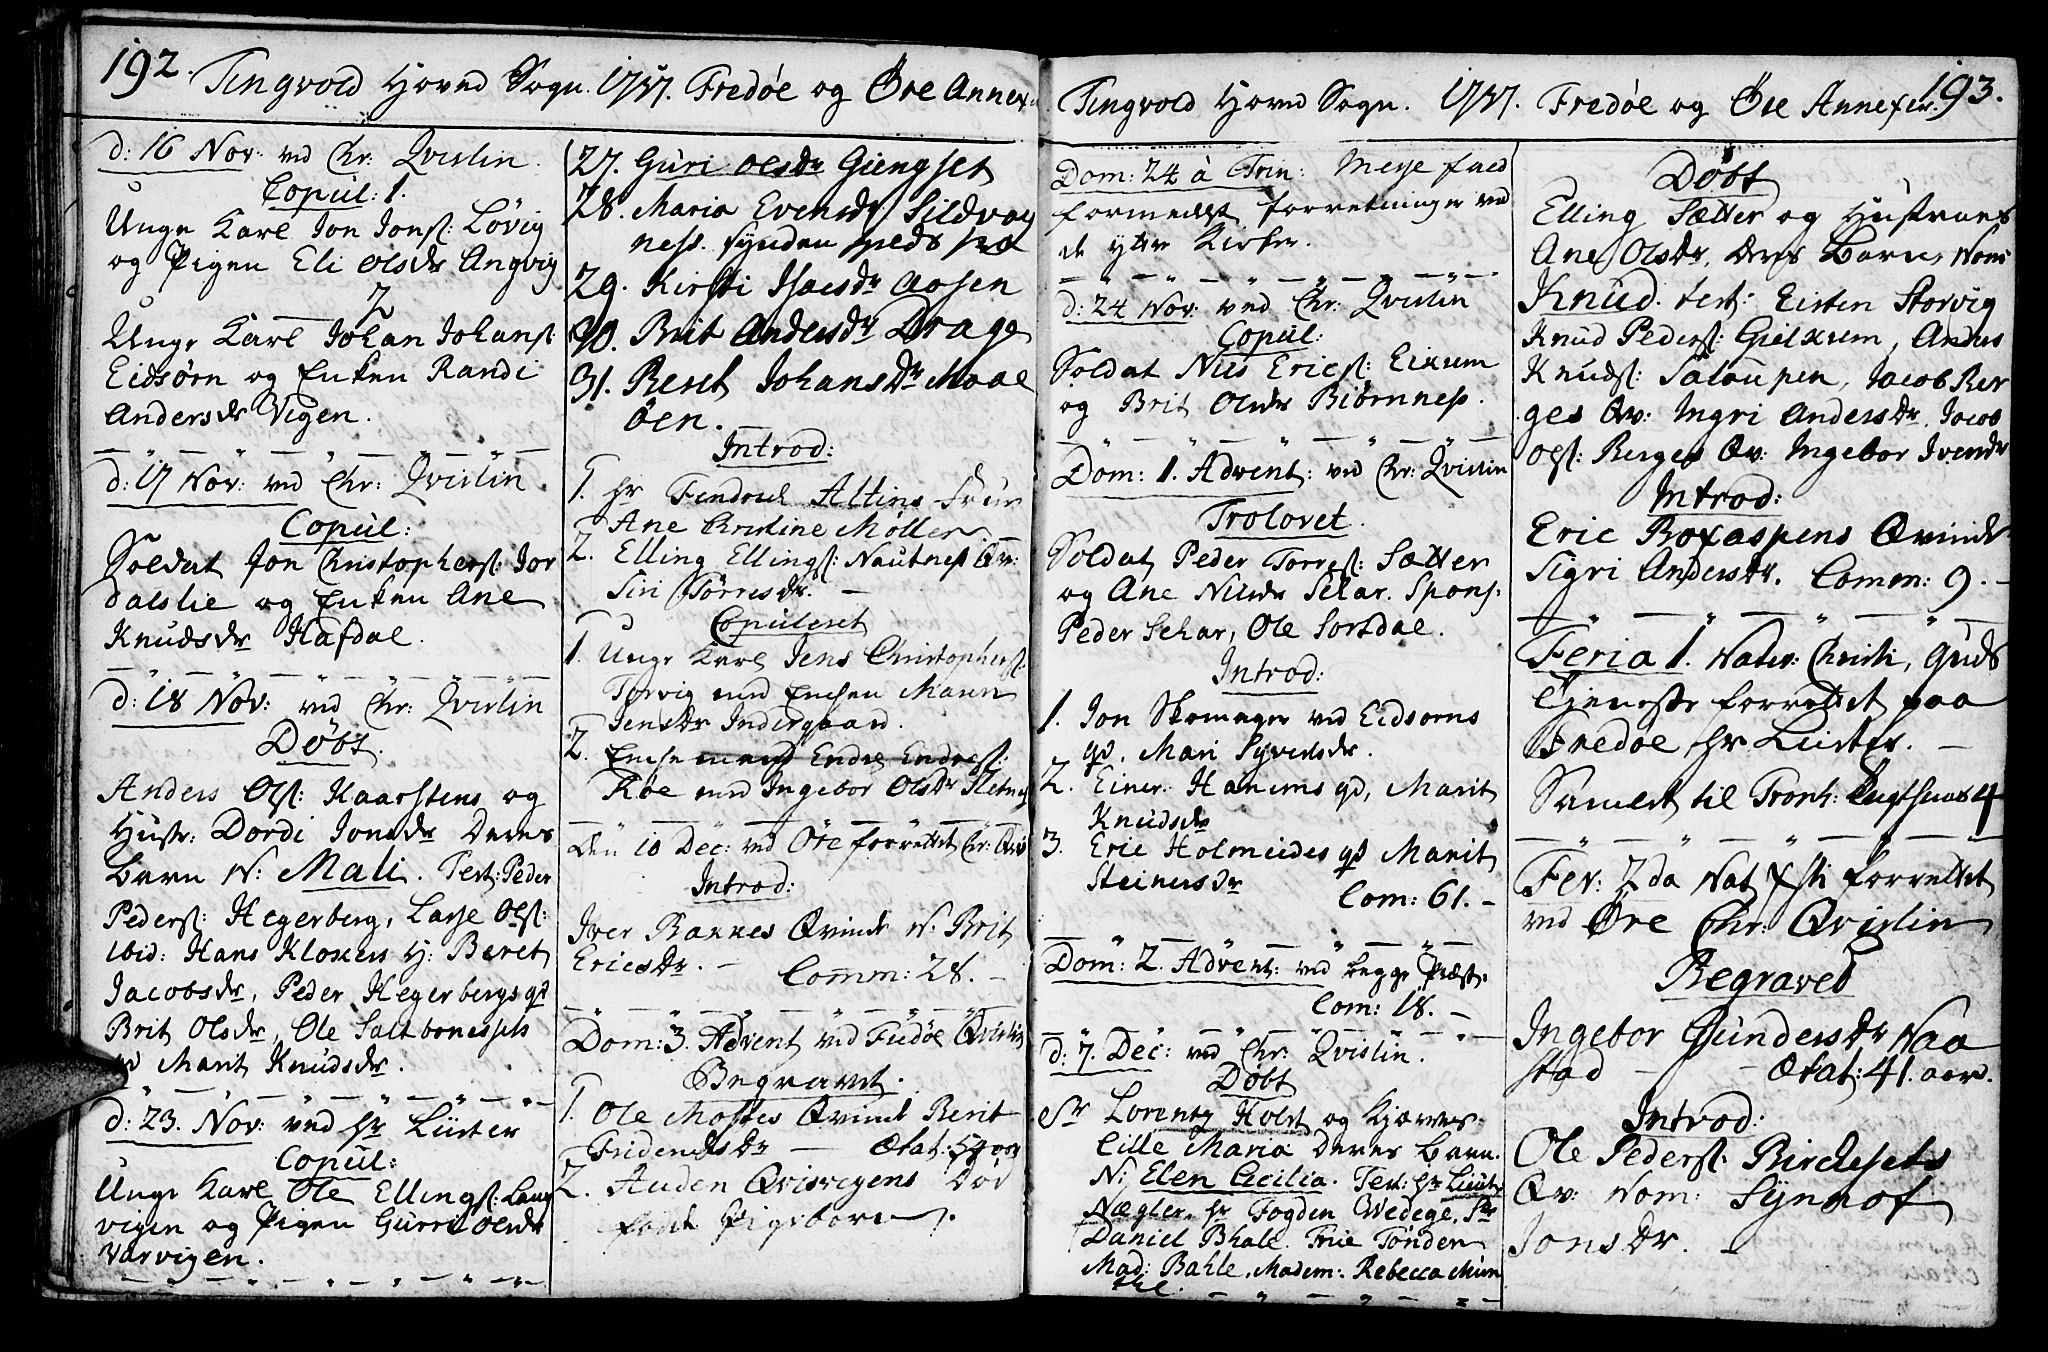 192. Tingvold Hoved Sogn. 1757. Fredøe og Øre Annex
d: 16 Nov: ved Chr: Qvislin
Copul: 1.
Unge Karl Jon Jons: Løvig
og Pigen Eli Olsdr Angvig
2
Unge Karl Johan Johans:
Eidsørn og Enken Randi
Andersdr Vigen.
d: 17 Nov: ved Chr: Qvislin
Copul:
Soldat Jon Christophers: Jor
dalslie og Enken Ane
Knudsdr Hafdal.
d: 18 Nov: ved Chr: Qvislin
Døbt.
Anders Ols: Kaarstens og
Hustr: Dordi Jonsdr Deres
Barn N: Mali. Test: Peder
Peders: Hegerberg, Lasse Ols:
ibid: Hans Kloxers H: Beret
Jacobsdr, Peder Hegerbergs qd
Brit Olsdr, Ole Saltbonessets
qd Marit Knudsdr.
d: 23. Nov: ved Hr Lüster
Copul:
Unge Karl Ole Ellings: Lang
vigen og Pigen Gurri Olsdr
Varvigen.
27. Guri Olsdr Giengset
28. Maria Evensdr Sildvog
ness.
29. Kirsti Isacsdr Aasen
30. Brit Andersdr Drage
31. Beret Johansdr Moae
øen.
Introd:
1. Hr Fendrich Altins Frue
Ane Christine Møller
2. Elling Ellings: Nautness Qv:
Siri Torresdr.
Copuleret
1. Unge Karl Jens Christophers:
Torvig med Enken Maren
Jensdr Indergaard.
2. Enkemand Endre Endres:
Røe med Ingebor Olsdr Fletnes
Den 10 Dec: ved Øre forrettet Chr: Qvis
Introd:
Iver Bakkes Qvinde N. Brit
Ericsdr. - Comm: 28. -
Dom: 3. Advent ved Fredøe Qvislin
Begravet.
1. Ole Mostes Qvinde Berit
Fridensdr - Ætat: 54 aar
2. Auden Qvisvigens Død
født Pigebarn.
Tingvold Hoved Sogn. 1757. Fredøe og Øre Annexer. 193.
Dom: 24 à Trin: Messe fald
formedelst forretninger ved
de ytre Kirker.
d: 24 Nov: ved Chr: Qvislin
Copul:
Soldat Nils Erics: Eikrem
og Brit Olsdr Biørnness.
Dom: 1. Advent: ved Chr: Qvislin
Trolovet.
Soldat Peder Torres: Sætter
og Ane Nilsdr Schar. Spons:
Peder Schar, Ole Sortdal.
Introd:
1. Jon Skomager ved Eidsørns
qd, Mari Syversdr.
2. Einer Hanems qd, Marit
Knudsdr
3. Eric Holmeides qd Marit
Steinersdr
Com: 61. -
Dom: 2. Advent: ved begge Præst:
Com: 18. -
d: 7. Dec: ved Chr: Qvislin.
Døbt
Sr Lorentz Holst og Kjæres:
Cille Maria Deres Barn.
N: Elen Cecilia. Test: Hr Lieut:
Nægler, Hr Fogden Wedege, Sr
Daniel Bhale. Frue Tønder
Mad: Bahle, Madem: Rebecca Mün
thel.
Døbt
Elling Sætter og Hustrues
Ane Olsdr, Deres Barn, Nom:
Knud. test: Eisten Storvig
Knud Peders: Gielkrem, Anders
Knuds: Saloupen, Jacob Ber
ges Qv: Ingri Andersdr, Jacob
Ols: Berges Qv: Ingebor Iversdr
Introd:
Eric Boxaspens Qvinde
Sigri Andersdr. Comm: 9. -
Feria 1. Nativ: Christi, Guds
Tjeneste forrettet paa
Fredøe Hr Lüster. -
Samlet til Tronh: Tugthuus 4
Fer: 2da Nat Xsti forrettet
ved Øre Chr: Qvislin
Begraved
Ingebor Gundersdr Naa
stad - - Ætat: 41. aar.
Introd:
Ole Peders: Birchesets
Qv: Nom: Synnof
Jonsdr. -